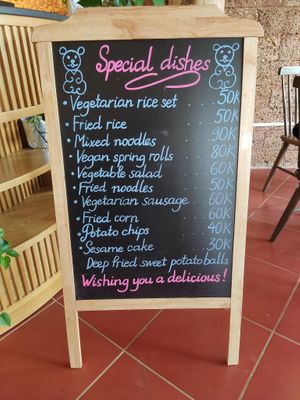 Special dishes
• Vegetarian rice set .... 50K
• Fried rice .... 50K
• Mixed noodles .... 90K
• Vegan spring rolls .... 80K
• Vegetable salad .... 60K
• Fried noodles .... 50K
• Vegetarian sausage .... 60K
• Fried corn .... 60K
• Potato chips .... 40K
• Sesame cake .... 30K
Deep fried sweet potato balls
Wishing you a delicious!